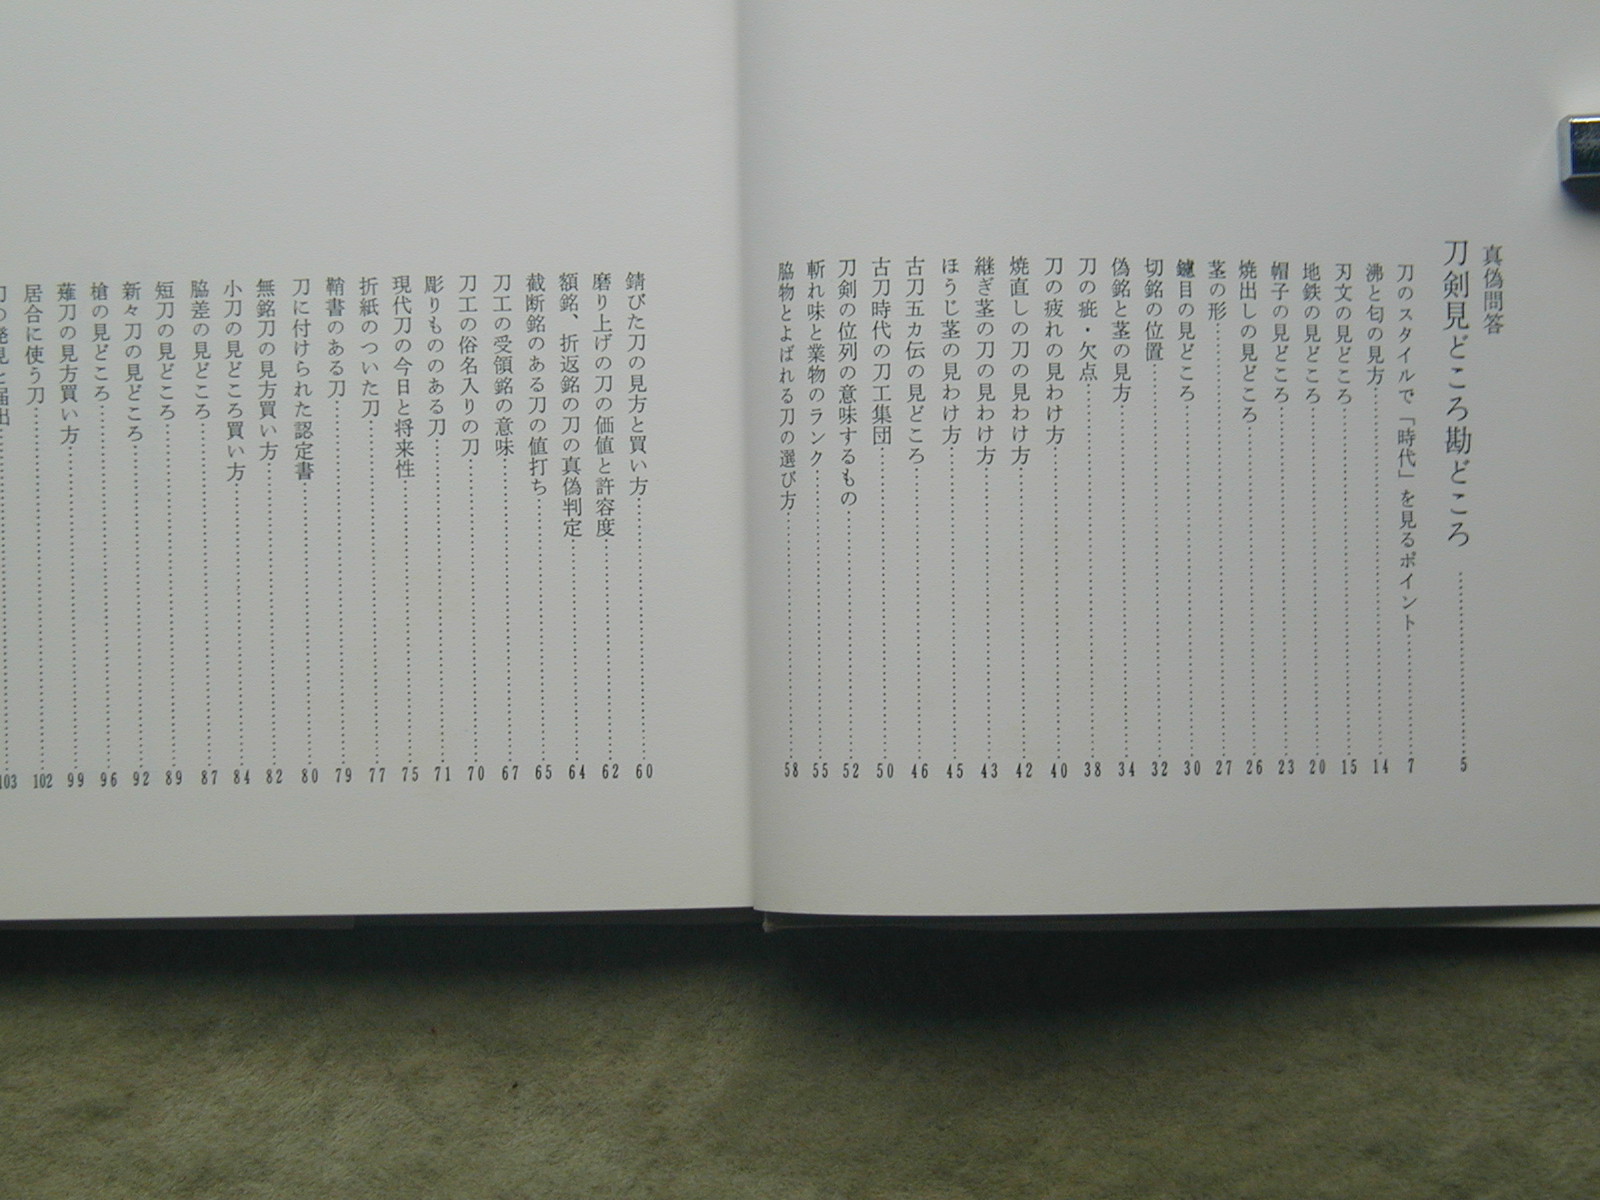 真偽問答
刀剣見どころ勘どころ……5
刀のスタイルで「時代」を見るポイント……7
沸と匂の見方……14
刃文の見どころ……15
地鉄の見どころ……20
帽子の見どころ……23
焼出しの見どころ……26
茎の形……27
鑢目の見どころ……30
切銘の位置……32
偽銘と茎の見方……34
刀の疵・欠点……38
刀の疲れの見わけ方……40
焼直しの刀の見わけ方……42
継ぎ茎の刀の見わけ方……43
ほうじ茎の見わけ方……45
古刀五カ伝の見どころ……46
古刀時代の刀工集団……50
刀剣の位列の意味するもの……52
斬れ味と業物のランク……55
脇物とよばれる刀の選び方……58
錆びた刀の見方と買い方……60
磨り上げの刀の価値と許容度……62
額銘、折返銘の刀の真偽判定……64
截断銘のある刀の値打ち……65
刀工の受領銘の意味……67
刀工の俗名入りの刀……70
彫りもののある刀……71
現代刀の今日と将来性……75
折紙のついた刀……77
鞘書のある刀……79
刀に付けられた認定書……80
無銘刀の見方買い方……82
小刀の見どころ買い方……84
脇差の見どころ……87
短刀の見どころ……89
新々刀の見どころ……92
槍の見どころ……96
薙刀の見方買い方……99
居合に使う刀……102
刀の発見と届出……103